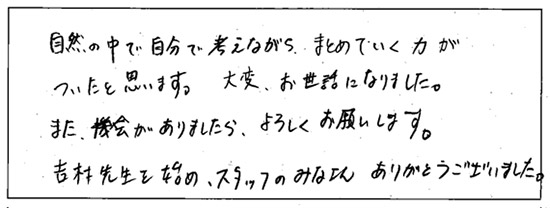 自然の中で自分で考えながら、まとめていく力が
ついたと思います。 大変、お世話になりました。
また、機会がありましたら、よろしくお願いします。
吉村先生を始め、スタッフのみなさん ありがとうございました。